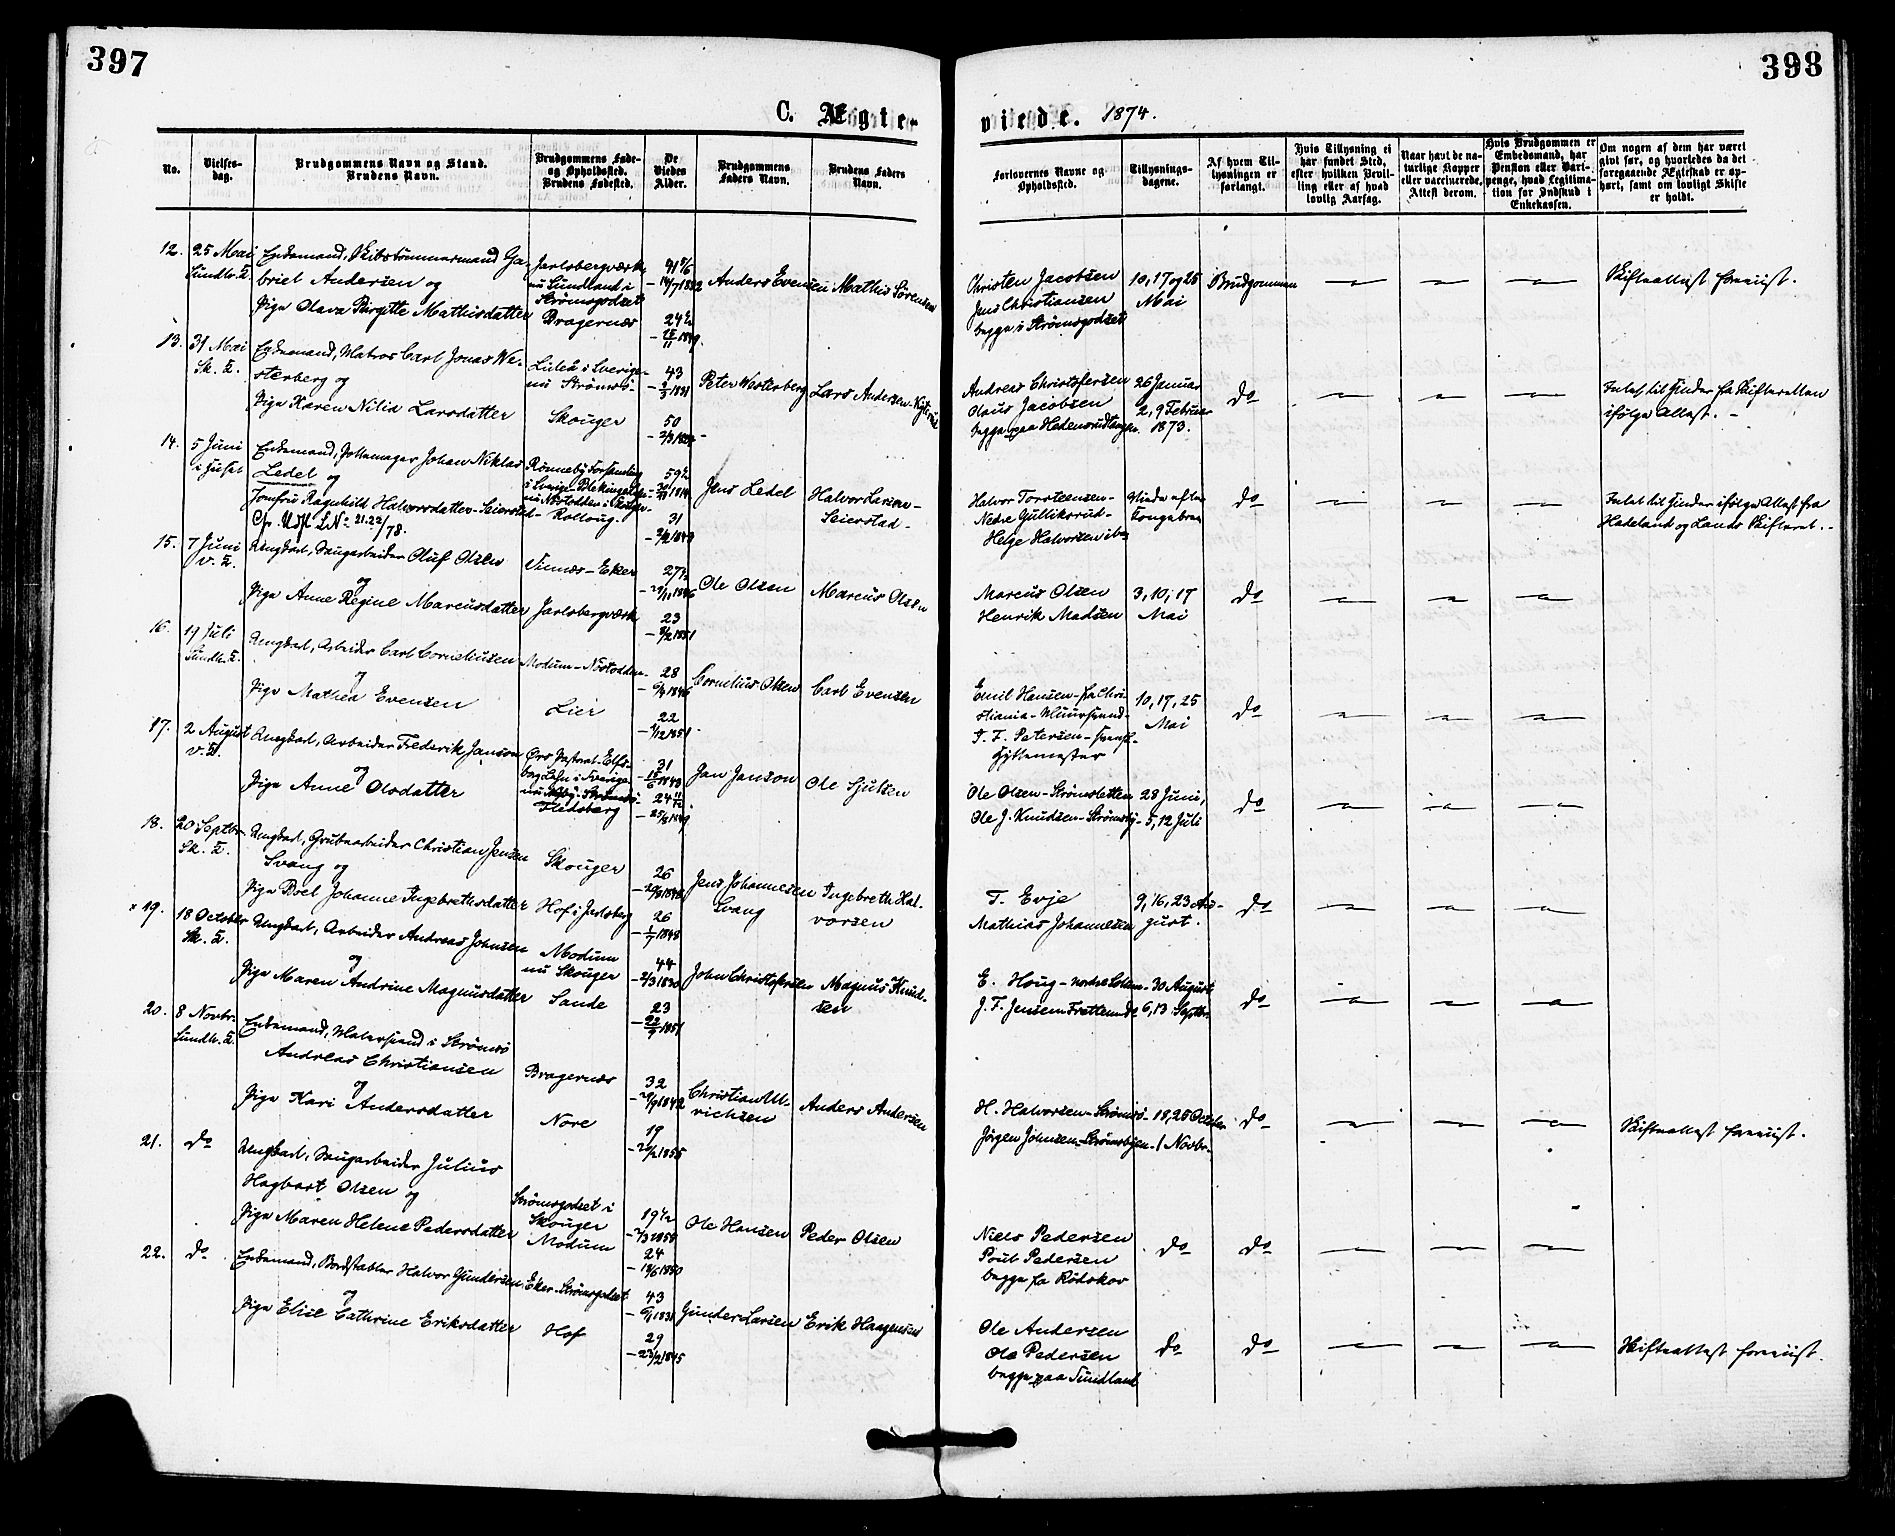 397
398
C. Ægte-
viede. 1874.
No.
Vielses-
dag.
Brudgommens Navn og Stand.
Brudens Navn.
Brudgommens Føde-
og Opholdssted.
Brudens Fødested.
De
Viedes
Alder.
Brudgommens
Faders Navn.
Brudens Faders
Navn.
Forlovernes Navne og
Opholdssted.
Tillysnings-
dagene.
Af hvem Til-
lysningen er
forlangt.
Hvis Tillysning ei
har fundet Sted,
efter hvilken Bevil-
ling eller af hvad
lovlig Aarsag.
Naar havt de na-
turlige Kopper
eller vaccinerede,
Attest derom.
Hvis Brudgommen er
Embedsmand, har
Pension eller Vart-
penge, hvad Legitima-
tion for Indskud i
Enkekassen.
Om nogen af dem har været
givt før, og hvorledes da det
foregaaende Ægteskab er op-
hørt, samt om lovligt Skifte
er holdt.
12.
25 Mai
Sundh. K.
Enkemand, Skibstømmermand Ga-
briel Andersen og
Pige Olava Birgitte Mathisdatter
Jarlsbergværk
nu Sundland i
Strømsgodset
Bragernes
24 ½
Anders Evensen
Mathis Sörensen
Christen Jacobsen
Jens Christiansen
begge i Strømsgodset
10, 17 og 25
Mai
Brudgommen
Skifteattest foreviist.
13.
31 Mai
Sk. K.
Enkemand, Matros Carl Jonas We-
sterberg og
Pige Karen Nilia Larsdatter
Luleå i Sverige
nu Strømsö
Skouger
43
50
Peter Westerberg
Lars Andersen
Andreas Christofersen
Olaus Jacobsen
26 Januar
2, 9 Februar
1873.
do
Intet til Hinder fra Skifteretten
ifølge Attest.
14.
5 Juni
i Huset
Enkemand, Pottemager Johan Niklas
Ledel og
Jomfru Ragnhild Halvorsdatter Seierstad
Cfr. Udst LNo 21.22/78.
Rønneby Forsamling
i Sverige Blekinge
Kolloug
59 ½
31
Jens Ledel
Halvor Larsen
Seierstad
Halvor Torsteensen
Nedre Gulliksrud
Helge Halvorsen ibm
Viede efter
Kongebrev
do
Intet til Hinder ifølge Attest fra
Hadeland og Lands Skifteret.
15.
7 Juni
V. K.
Ungkarl, Saugarbeider Oluf Olsen
og
Pige Anne Regine Marcusdatter
Eker
Jarlsbergværk
27 ½
23
Ole Olsen
Marcus Olsen
Marcus Olsen
Henrik Madsen
3, 10, 17
Mai
do
16.
19 Juli
Sundh. K.
Ungkarl, Arbeider Carl Corneliusen
og
Pige Mathea Evensen
Modum
Lier
28
22
Cornelius Olsen
Carl Evensen
Emil Hansen fra Chri-
stiania
T. F. Petersen
10, 17, 25
Mai
do
17.
2 August
V. K.
Ungkarl, Arbeider Frederik Janson
og
Pige Anne Olsdatter
i Sverige
Flesberg
31
Jan Janson
Ole Sjulsen
Ole Olsen Strømsletten
Ole J. Knudsen
28 Juni,
5, 12 Juli
do
18.
20 Septbr.
Sk. K.
Ungkarl, Grubearbeider Christian Jensen
Svang og
Pige Boel Johanne Ingebrethsdatter
Skouger
Hof i Jarlsberg
26
26
Jens Johannesen
Svang
Ingebreth Hal-
vorsen
T. Evje
Mathias Johannesen
9, 16, 23 Au-
gust.
do
19.
18 October
Sk. K.
Ungkarl, Arbeider Andreas Johnsen
og
Pige Maren Andrine Magnusdatter
Modum
nu Skouger
Sande
44
23
John Christofersen
Magnus Knud-
sen
E. Houg
J. F. Jensen
30 August
6, 13 Septbr.
do
20.
8 Novbr.
Sundh. K.
Enkemand, i Strømsö
Andreas Christiansen
og
Pige Kari Andersdatter
Bragernes
Nore
32
19
Christian Ul-
richsen
Anders Andersen
H. Halvorsen Strömsö
Jörgen Johnsen
18, 25 October
1 Novbr.
do
Skifteattest foreviist.
21.
do
Ungkarl, Saugarbeider Julius
Hagbart Olsen og
Pige Maren Helene Pedersdatter
Strömsgodset i
Skouger
Modum
19 ½
24
Ole Hansen
Peder Olsen
Niels Pedersen
Poul Pedersen
begge fra Rödskov
do
do
22.
do
Enkemand, Bordstabler Halvor Gundersen
og
Pige Elise Cathrine Eriksdatter
Eker Strömsgodset
Hof
43
29
Gunder Larsen
Erik Haagensen
Ole Andersen
Ole Pedersen
begge paa Sundland
do
do
Skifteattest foreviist.